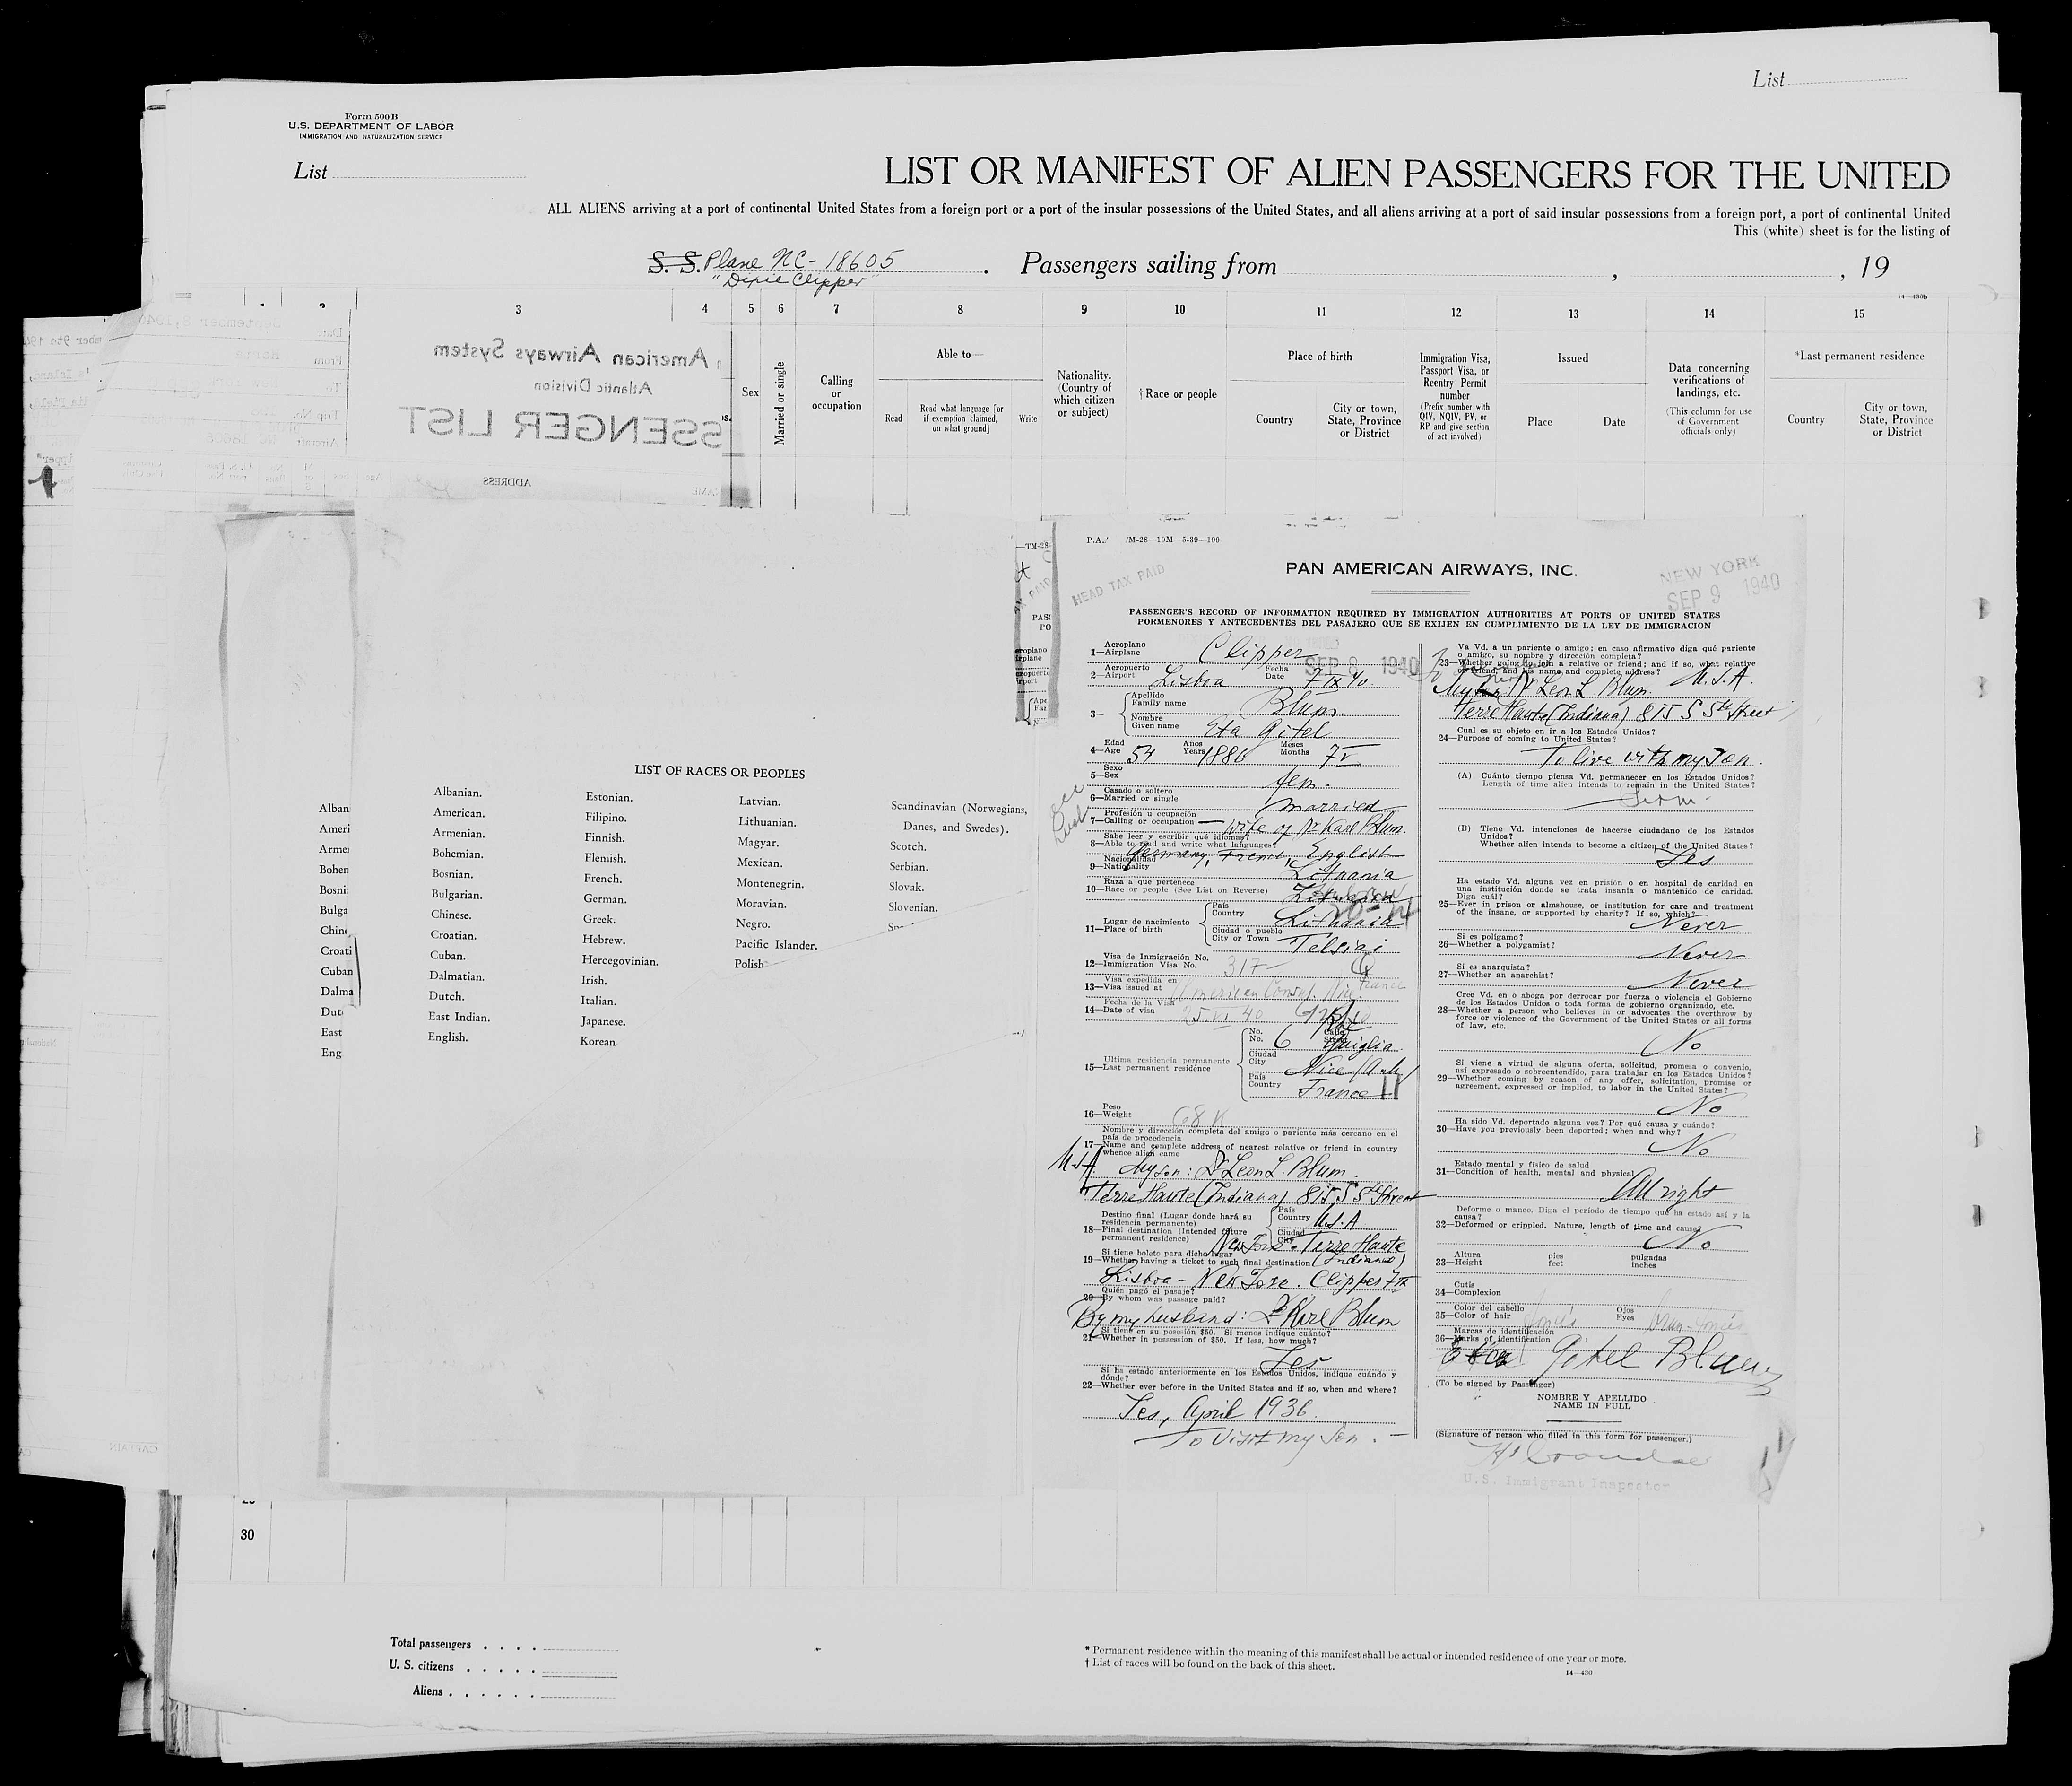 List
Form 500 B
U.S. DEPARTMENT OF LABOR
IMMIGRATION AND NATURALIZATION SERVICE
List
LIST OR MANIFEST OF ALIEN PASSENGERS FOR THE UNITED
ALL ALIENS arriving at a port of continental United States from a foreign port or a port of the insular possessions of the United States, and all aliens arriving at a port of said insular possessions from a foreign port, a port of continental United
This (white) sheet is for the listing of
S. S. Plane NC-18605. Passengers sailing from , , 19
"Dixie Clipper"
14—430b
3 4 5 6 7 8 9 10 11 12 13 14 15
American Airways System
Atlantic Division
SSENGER LIST
ADDRESS
Sex
Married or single
Calling
or
occupation
Able to—
Read
Read what language [or
if exemption claimed,
on what ground]
Write
Nationality.
(Country of
which citizen
or subject)
†Race or people
Place of birth
Country
City or town,
State, Province
or District
Immigration Visa,
Passport Visa, or
Reentry Permit
number
(Prefix number with
QIV, NQIV, PV, or
RP and give section
of act involved)
Issued
Place
Date
Data concerning
verifications of
landings, etc.
(This column for use
of Government
officials only)
*Last permanent residence
Country
City or town,
State, Province
or District
LIST OF RACES OR PEOPLES
Alban
Ameri
Arme
Bohen
Bosni
Bulga
Chin
Croati
Cuban
Dalma
Dut
East
Eng
Albanian.
American.
Armenian.
Bohemian.
Bosnian.
Bulgarian.
Chinese.
Croatian.
Cuban.
Dalmatian.
Dutch.
East Indian.
English.
Estonian.
Filipino.
Finnish.
Flemish.
French.
German.
Greek.
Hebrew.
Hercegovinian.
Irish.
Italian.
Japanese.
Korean
Latvian.
Lithuanian.
Magyar.
Mexican.
Montenegrin.
Moravian.
Negro.
Pacific Islander.
Polish
Scandinavian (Norwegians,
Danes, and Swedes).
Scotch.
Serbian.
Slovak.
Slovenian.
P.A. M-28—10M—5-39—100
HEAD TAX PAID
PAN AMERICAN AIRWAYS, INC.
NEW YORK
SEP 9 1940
PASSENGER'S RECORD OF INFORMATION REQUIRED BY IMMIGRATION AUTHORITIES AT PORTS OF UNITED STATES
PORMENORES Y ANTECEDENTES DEL PASAJERO QUE SE EXIJEN EN CUMPLIMIENTO DE LA LEY DE IMMIGRACION
Aeroplano
1—Airplane Clipper
SEP 9 1940
Aeropuerto Fecha
2—Airport Lisboa Date 7 IX 40
Apellido
Family name Blum
3—
Nombre
Given name Eta Gitel
Edad Años Meses
4—Age 54 Years 1886 Months 7 V
Sexo
5—Sex fem.
Casado o soltero
6—Married or single married
Profesión u ocupación
7—Calling or occupation — wife of Dr Karl Blum.
Sabe leer y escribir qué idiomas?
8—Able to read and write what languages? Germany, French, English
Nacionalidad
9—Nationality Lituania
Raza a que pertenece
10—Race or people (See List on Reverse)
Lugar de nacimiento
11—Place of birth
País
Country Lithuania
Ciudad o pueblo
City or Town Telsiai
Visa de Inmigración No.
12—Immigration Visa No. 317— Q
Visa expedida en
13—Visa issued at American Consul. Nice France
Fecha de la Visa
14—Date of visa 25 VI 40
Ultima residencia permanente
15—Last permanent residence
No.
No. 6
Calle
Ciudad
City Nice
País
Country France
Peso
16—Weight 68 K
Nombre y dirección completa del amigo o pariente más cercano en el
país de procedencia
17—Name and complete address of nearest relative or friend in country
whence alien came
My son: Dr Leon L. Blum.
Terre Haute (Indiana) 815 S 5th Street
Destino final (Lugar donde hará su
residencia permanente)
18—Final destination (Intended future
permanent residence)
País
Country U.S.A
Ciudad
City Terre Haute
(Indiana)
Si tiene boleto para dicho lugar
19—Whether having a ticket to such final destination
Lisboa – New York. Clipper 7 IX
Quién pagó el pasaje?
20—By whom was passage paid?
By my husband: Dr Karl Blum
Si tiene en su posesión $50. Si menos indique cuánto?
21—Whether in possession of $50. If less, how much?
Yes
Si ha estado anteriormente en los Estados Unidos, indique cuándo y
dónde?
22—Whether ever before in the United States and if so, when and where?
Yes, April 1936.
To visit my son. —
Va Vd. a un pariente o amigo; en caso afirmativo diga qué pariente
o amigo, su nombre y dirección completa?
23—Whether going to join a relative or friend; and if so, what relative
or friend, and his name and complete address?
My son: Dr Leon L Blum. U.S.A.
Terre Haute (Indiana) 815 S 5th Street
Cual es su objeto en ir a los Estados Unidos?
24—Purpose of coming to United States?
To live with my son.
(A) Cuánto tiempo piensa Vd. permanecer en los Estados Unidos?
Length of time alien intends to remain in the United States?
(B) Tiene Vd. intenciones de hacerse ciudadano de los Estados
Unidos?
Whether alien intends to become a citizen of the United States?
Yes
Ha estado Vd. alguna vez en prisión o en hospital de caridad en
una institución donde se trata insania o mantenido de caridad.
Diga cuál?
25—Ever in prison or almshouse, or institution for care and treatment
of the insane, or supported by charity? If so, which?
Never
Si es polígamo?
26—Whether a polygamist? Never
Si es anarquista?
27—Whether an anarchist? Never
Cree Vd. en o aboga por derrocar por fuerza o violencia el Gobierno
de los Estados Unidos o toda forma de gobierno organizado, etc.
28—Whether a person who believes in or advocates the overthrow by
force or violence of the Government of the United States or all forms
of law, etc.
No
Si viene a virtud de alguna oferta, solicitud, promesa o convenio,
así expresado o sobreentendido, para trabajar en los Estados Unidos?
29—Whether coming by reason of any offer, solicitation, promise or
agreement, expressed or implied, to labor in the United States?
No
Ha sido Vd. deportado alguna vez? Por qué causa y cuándo?
30—Have you previously been deported; when and why?
No
Estado mental y físico de salud
31—Condition of health, mental and physical
All right
Deforme o manco. Diga el período de tiempo que ha estado así y la
causa?
32—Deformed or crippled. Nature, length of time and cause?
No
Altura pies pulgadas
33—Height feet inches
Cutis
34—Complexion
Color del cabello Ojos
35—Color of hair Eyes
Marcas de identificación
36—Marks of identification
Eta Gitel Blum
(To be signed by Passenger)
NOMBRE Y APELLIDO
NAME IN FULL
(Signature of person who filled in this form for passenger.)
U.S. Immigrant Inspector
30
Total passengers
U. S. citizens
Aliens
* Permanent residence within the meaning of this manifest shall be actual or intended residence of one year or more.
† List of races will be found on the back of this sheet.
14—430